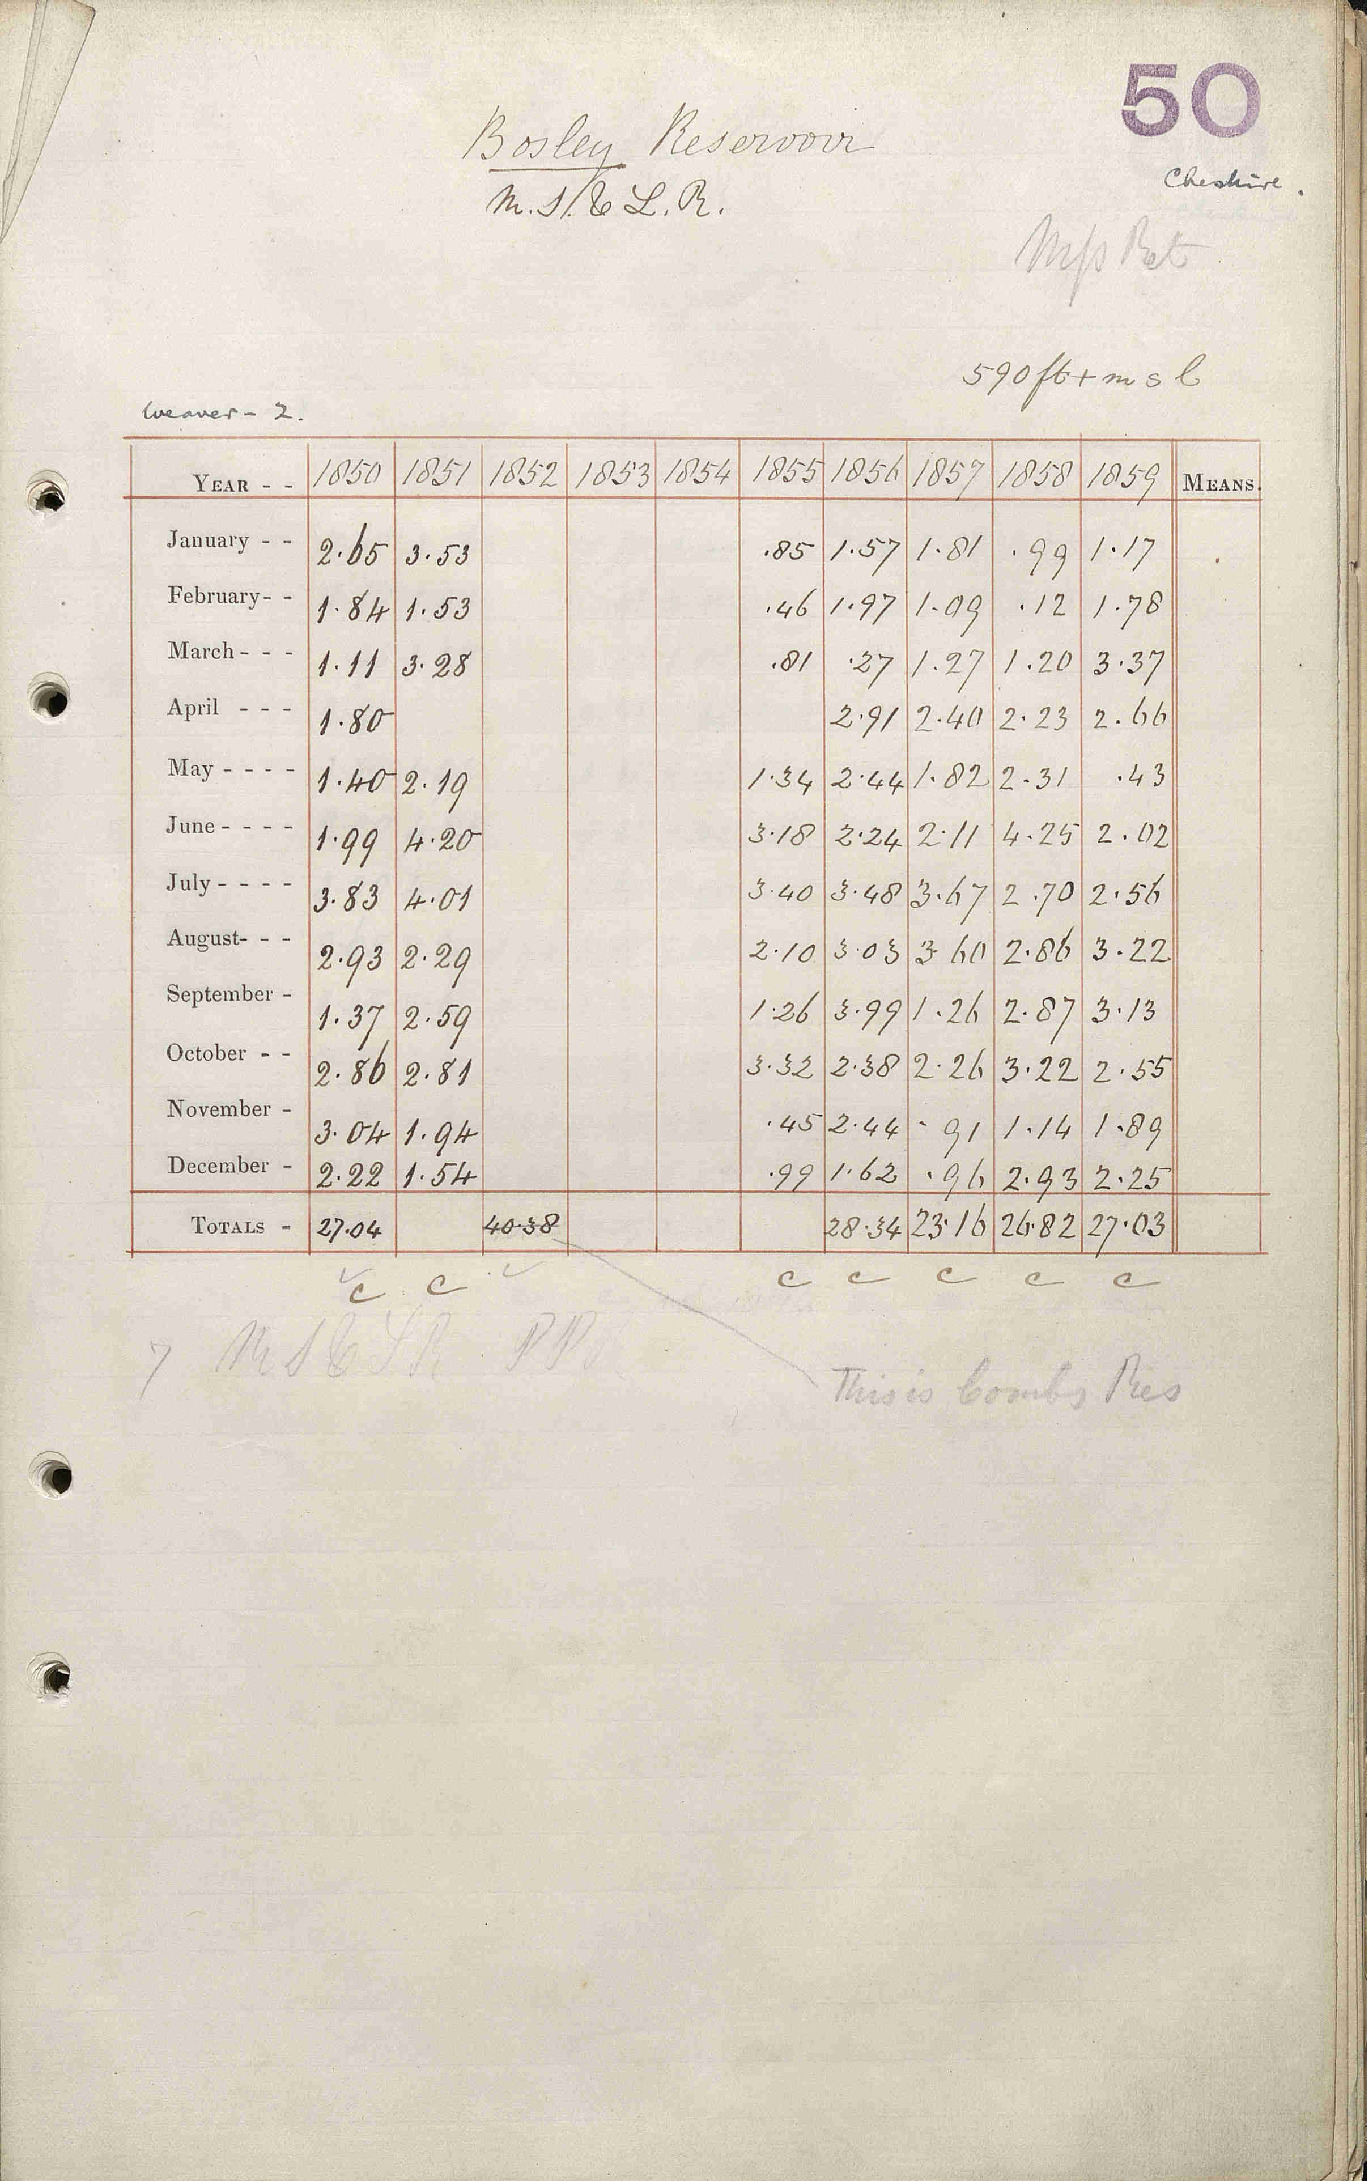 50
Bosley Reservoir
M. S. & L. R.
Cheshire.
Mss Ret
590 ft + m s l
Weaver - 2.
YEAR - - 1850 1851 1852 1853 1854 1855 1856 1857 1858 1859 MEANS.
January - - 2.65 3.53 .85 1.57 1.81 .99 1.17
February - - 1.84 1.53 .46 1.97 1.09 .12 1.78
March - - - 1.11 3.28 .81 .27 1.27 1.20 3.37
April - - - 1.80 2.91 2.40 2.23 2.66
May - - - - 1.40 2.19 1.34 2.44 1.82 2.31 .43
June - - - - 1.99 4.20 3.18 2.24 2.11 4.25 2.02
July - - - - 3.83 4.01 3.40 3.48 3.67 2.70 2.56
August - - - 2.93 2.29 2.10 3.03 3.60 2.86 3.22
September - 1.37 2.59 1.26 3.99 1.26 2.87 3.13
October - - 2.86 2.81 3.32 2.38 2.26 3.22 2.55
November - 3.04 1.94 .45 2.44 .91 1.14 1.89
December - 2.22 1.54 .99 1.62 .96 2.93 2.25
TOTALS - 27.04 40.38 28.34 23.16 26.82 27.03
c c c c c c c
7 M S & L R
This is Combs Res